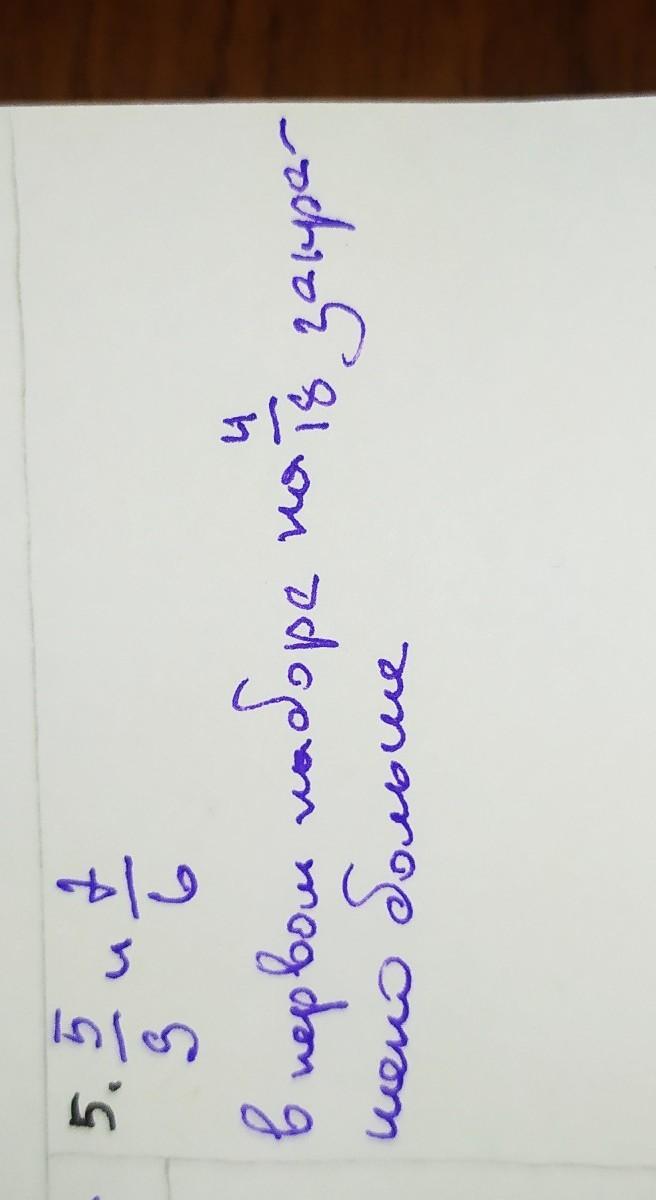 5. 5/9 и 7/6
в первом наборе на 4/18 закра-
шено больше